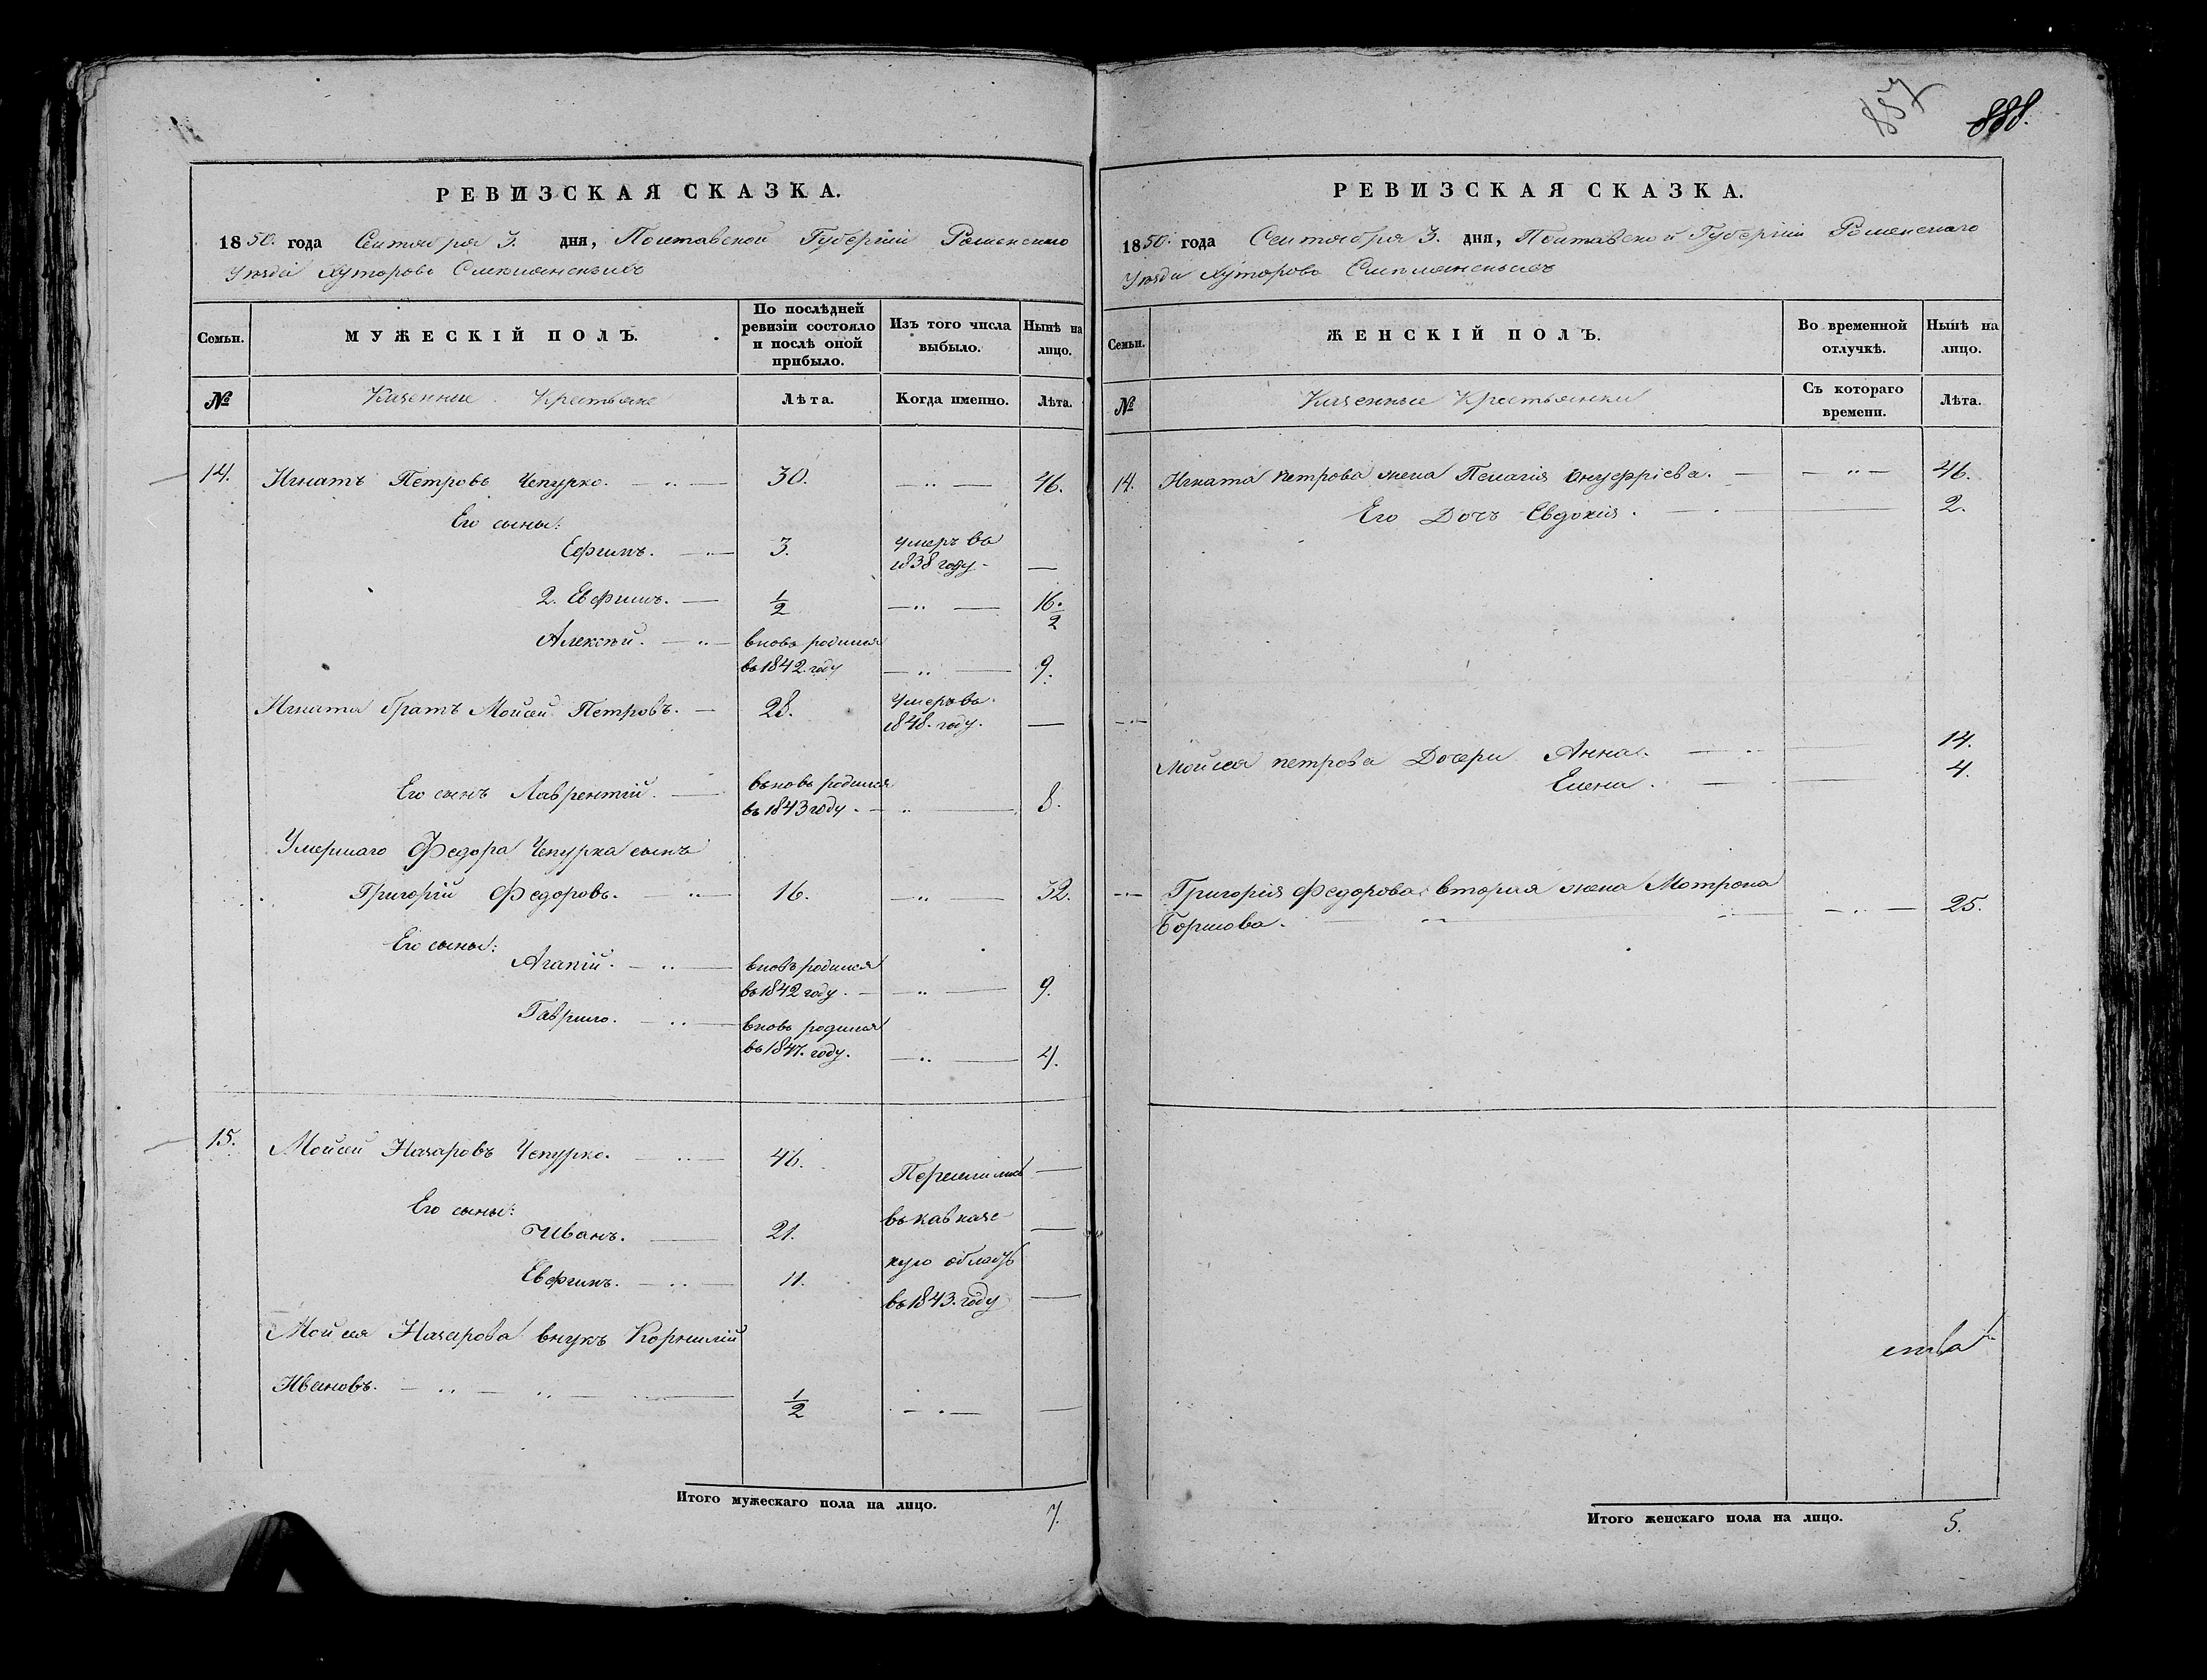 РЕВИЗСКАЯ СКАЗКА.
1850. года Сентября 3. дня, Полтавской Губерніи Роменского
Уезда Хуторовъ
Семьи.
МУЖЕСКІЙ ПОЛЪ.
По послѣдней
ревизіи состояло
и послѣ оной
прибыло.
Изъ того числа
выбыло.
Нынѣ на
лицо.
№
Казенные Крестьяне
Лѣта.
Когда именно.
Лѣта.
14. Игнатъ Петровъ Чепурко. 30. 46.
Его сыны:
Ефимъ. 3. умеръ въ
1838 году —
2. Евфимъ. 1/2 16. 1/2
Алексѣй. вновь родился
въ 1842. году 9.
Игната братъ Мойсей Петровъ. 28. Умеръ въ
1848. году. —
Его сынъ Лаврентій. вьновь родился
въ 1843 году. 8.
Умершаго Федора Чепурка сынъ
Григорій Федоровъ. 16. 32.
Его сыны:
Агапій. вновь родился
въ 1842 году. 9.
Гаврило. вновь родился
въ 1847. году. 4.
15. Мойсей Назаровъ Чепурко. 46. Перешли —
Его сыны:
Иванъ. 21. въ кавказс
Евфимъ. 11. кую область
въ 1843. году
Мойсея Назарова внукъ Корнилій
Ивановъ. 1/2 —
Итого мужескаго пола на лицо. 7.
857
888.
РЕВИЗСКАЯ СКАЗКА.
1850. года Сентября 3. дня, Полтавской Губерніи Роменскаго
Уезда Хуторовъ
Семьи.
ЖЕНСКІЙ ПОЛЪ.
Во временной
отлучкѣ.
Нынѣ на
лицо.
№
Казенные Крестьянки
Съ котораго
времени.
Лѣта.
14. Игната петрова жена Пелагія Онуфріева. 46.
Его Дочь Евдокия. 2.
Мойсея петрова Дочери Анна. 14.
Елена. 4.
Григорія Федорова вторая жена Мотрона
Борисова. 25.
Итого женскаго пола на лицо. 5.